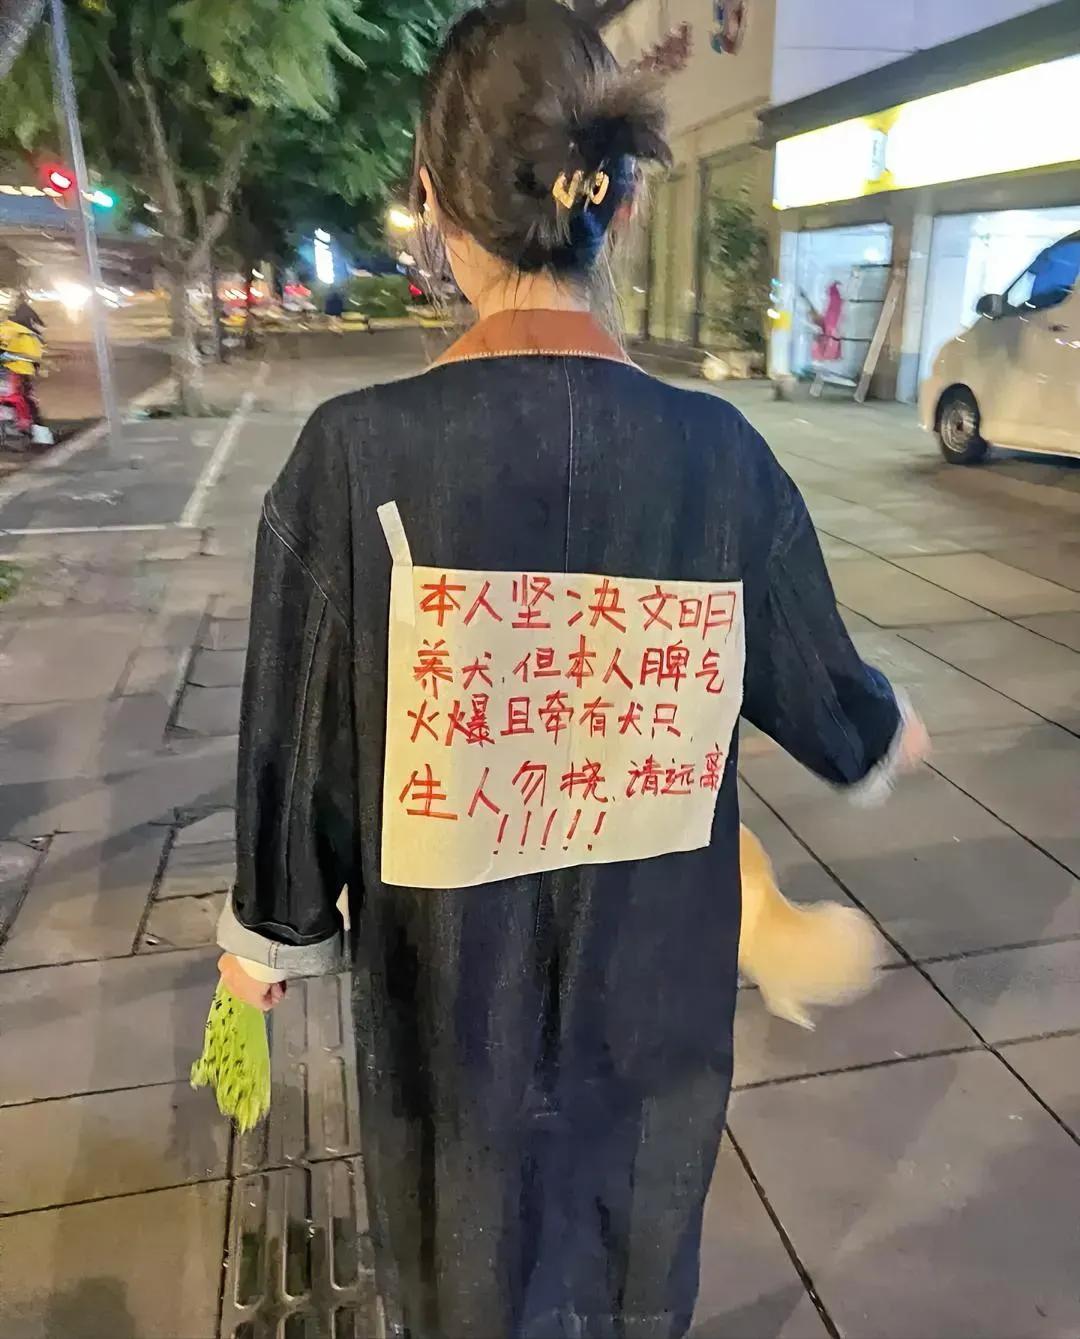 本人坚决文明
养犬，但本人脾气
火爆且牵有犬只，
生人勿挠，请远离
!!!!!